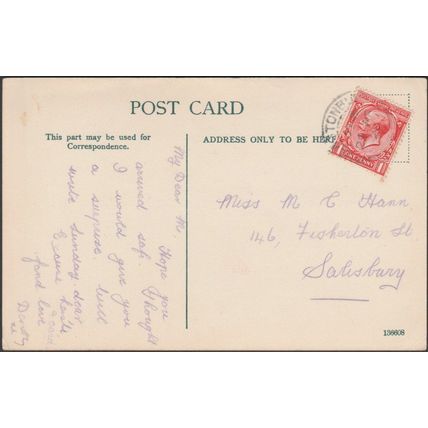 POST CARD
This part may be used for
Correspondence.
ADDRESS ONLY TO BE HERE
ONE PENNY
1 1
My Dear M Hope you
arrived safe. I thought
I would give you
a suprise. Will
write Sunday dear
Excuse haste
fond love
Miss M C Hann
146, Fisherton St
Salisbury
136608